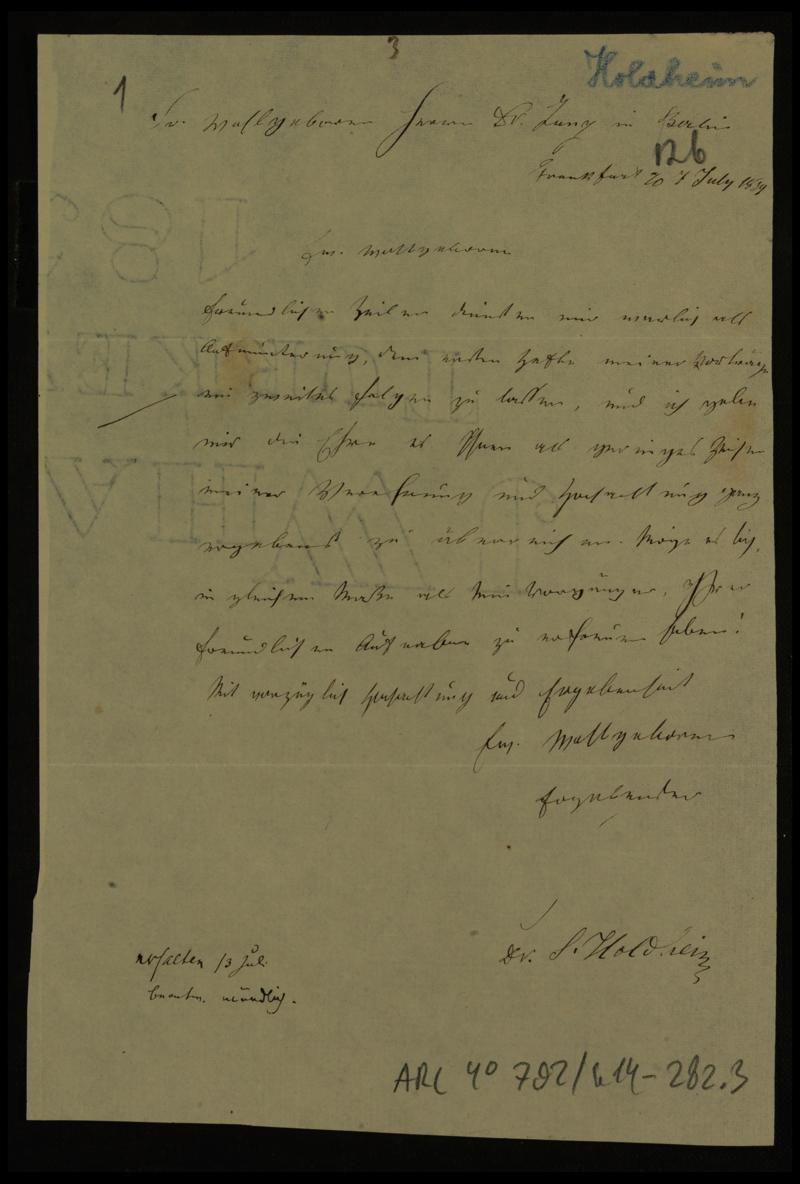 3
1
Holdheim
Sr. Wohlgeboren Herrn Dr. Zunz in Berlin
126
Frankfurt 7 July 1839
Ew. Wohlgeboren
freundlichen Zeilen dienten mir als
Aufmunterung, dem ersten Hefte meiner Vorträge
ein zweites folgen zu lassen, und ich gebe
mir die Ehre es Ihnen als geringes Zeichen
meiner Verehrung und Hochachtung ganz
ergebenst zu überreichen. Möge es sich,
in gleichem Maße als sein Vorgänger, Ihrer
freundlichen Aufnahme zu erfreuen haben!
Mit vorzüglich Hochachtung und Ergebenheit
Ew. Wohlgeboren
Ergebenster
Dr. S. Holdheim
erhalten 13 Jul.
beantw. mündlich.
ARC 4° 792/
282.3